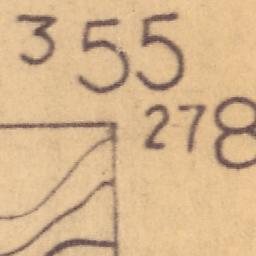 355
278